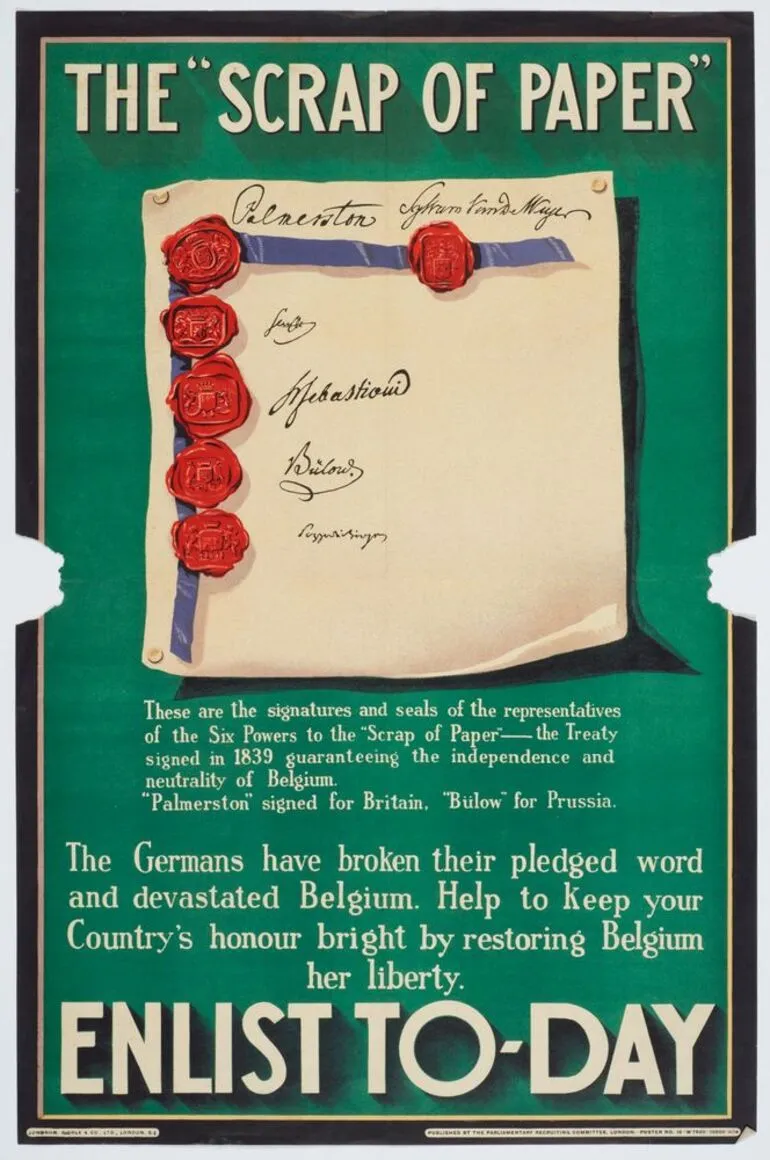 THE "SCRAP OF PAPER"
Palmerston Sylvain Van de Weyer
Senfft
H Sebastiani
Bülow.
These are the signatures and seals of the representatives
of the Six Powers to the "Scrap of Paper"—the Treaty
signed in 1839 guaranteeing the independence and
neutrality of Belgium.
"Palmerston" signed for Britain, "Bülow" for Prussia.
The Germans have broken their pledged word
and devastated Belgium. Help to keep your
Country's honour bright by restoring Belgium
her liberty.
ENLIST TO-DAY
LONDON, S.E.
PUBLISHED BY THE PARLIAMENTARY RECRUITING COMMITTEE, LONDON. POSTER NO.